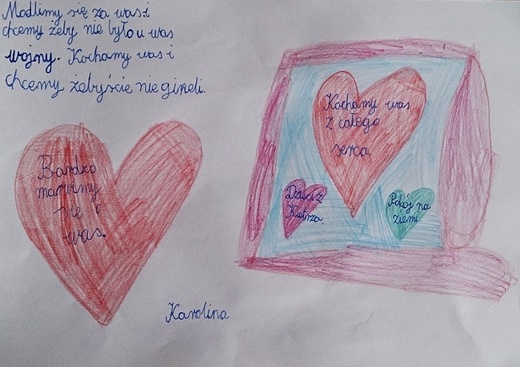 Modlimy się za was i
chcemy żeby nie było u was
wojny. Kochamy was i
chcemy żebyście nie gineli.
Bardzo
martwimy
się o
was.
Kochamy was
z całego
serca
Dzieci z
Kietrza
Pokój na
ziemi
Karolina